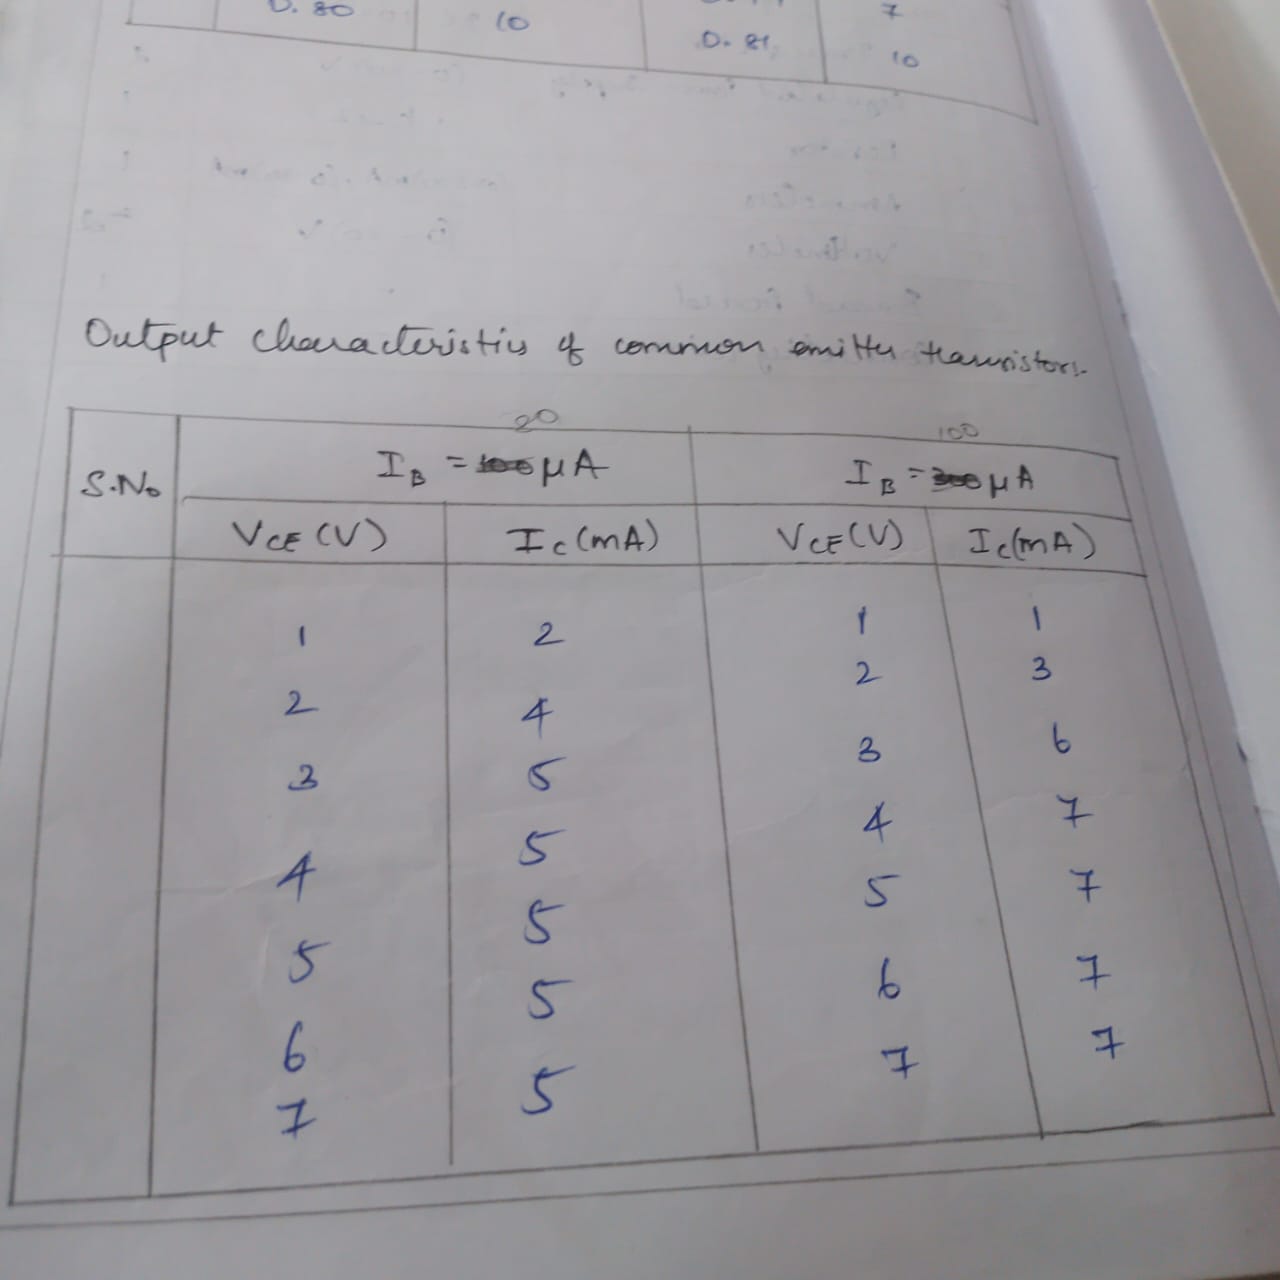 0.80 10 7
0.81 10
Output characteristics of common emitter transistors.
20 100
S.No IB = μA IB = μA
VCE (V) IC (mA) VCE (V) IC (mA)
1 2 1 1
2 4 2 3
3 5 3 6
4 5 4 7
5 5 5 7
6 5 6 7
7 5 7 7